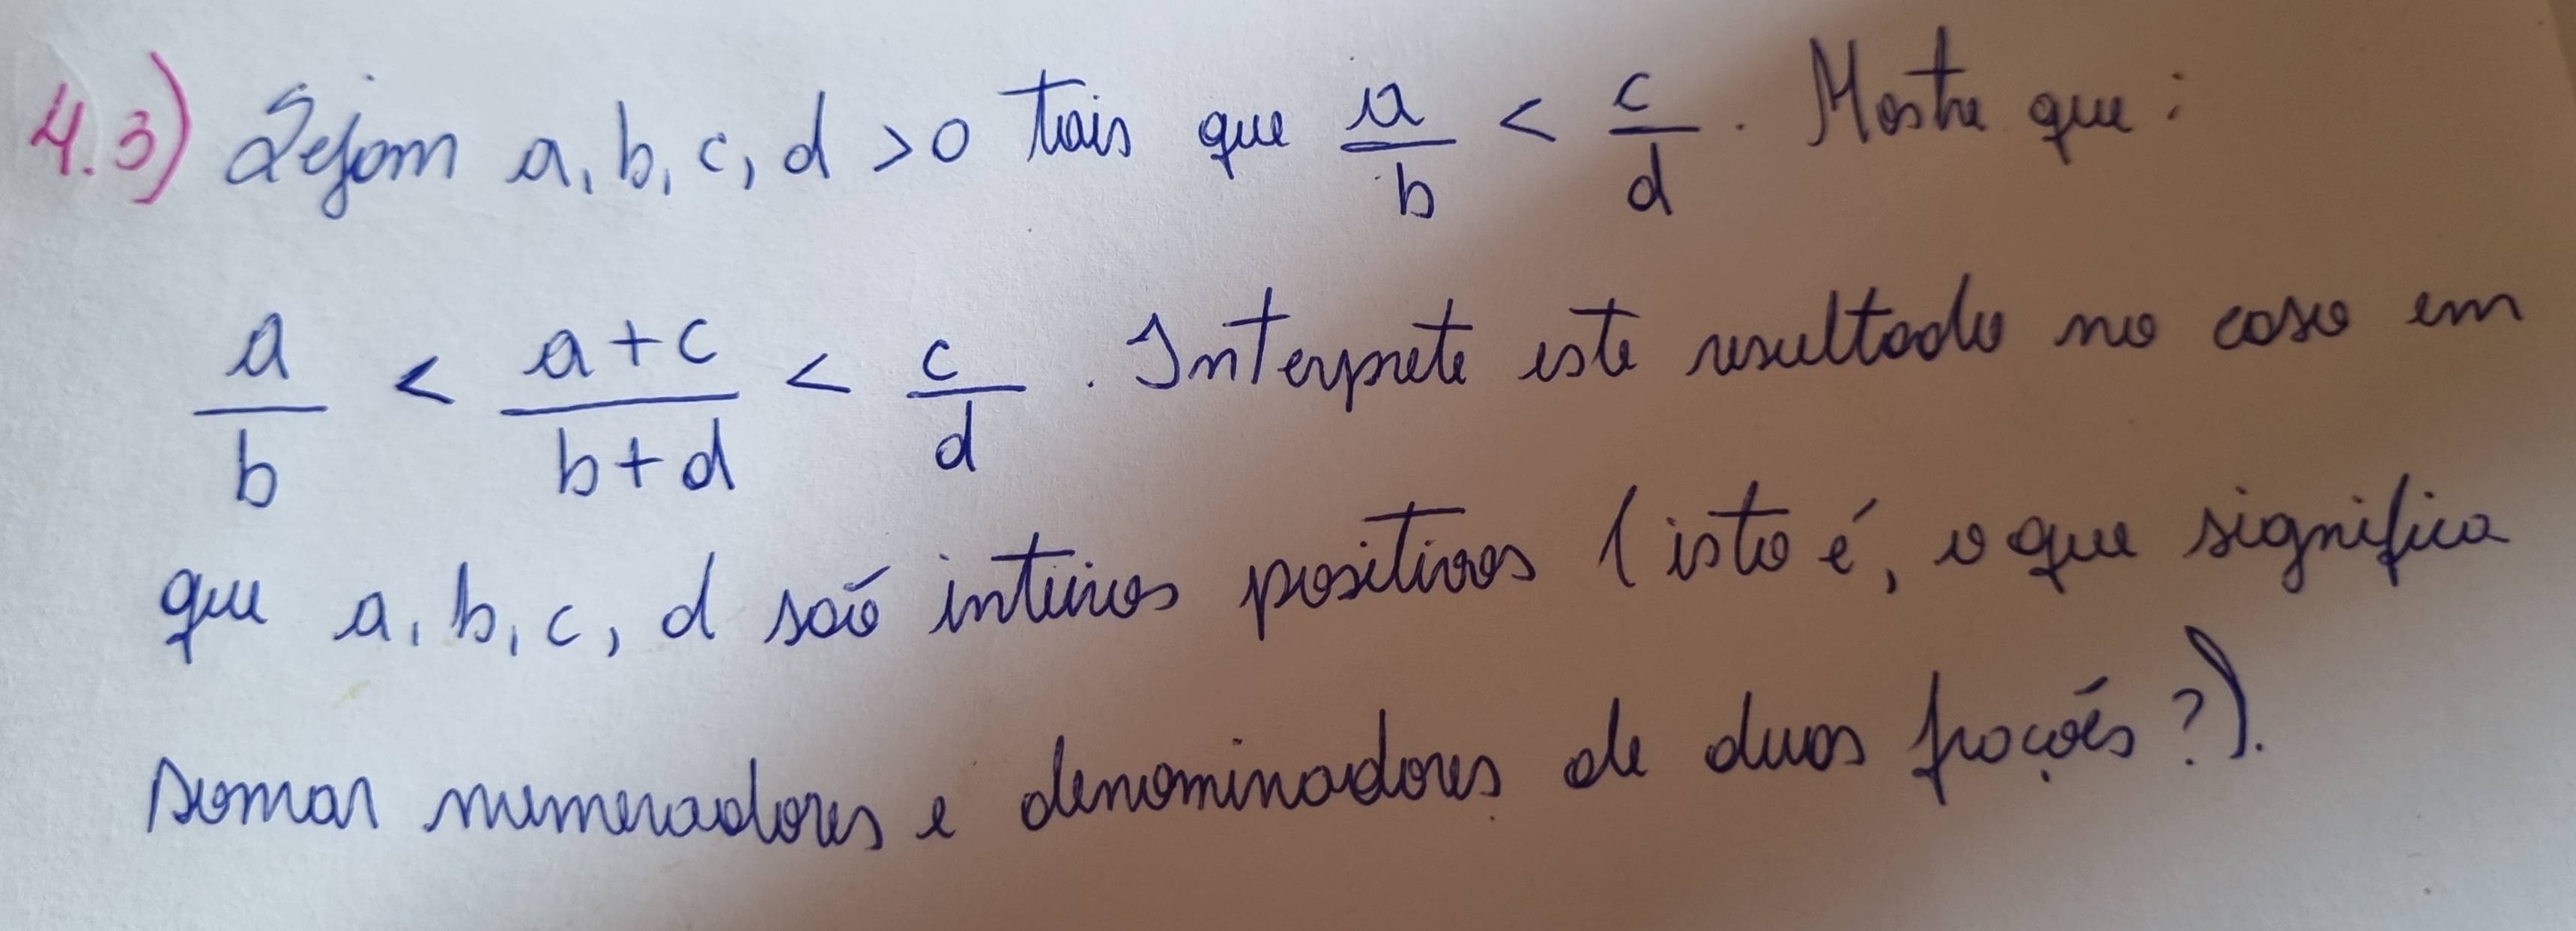 4.3) Sejam a, b, c, d > 0 tais que a/b < c/d. Mostre que:
a/b < (a+c)/(b+d) < c/d. Interprete este resultado no caso em
que a, b, c, d são inteiros positivos (isto é, o que significa
somar numeradores e denominadores de duas frações?).